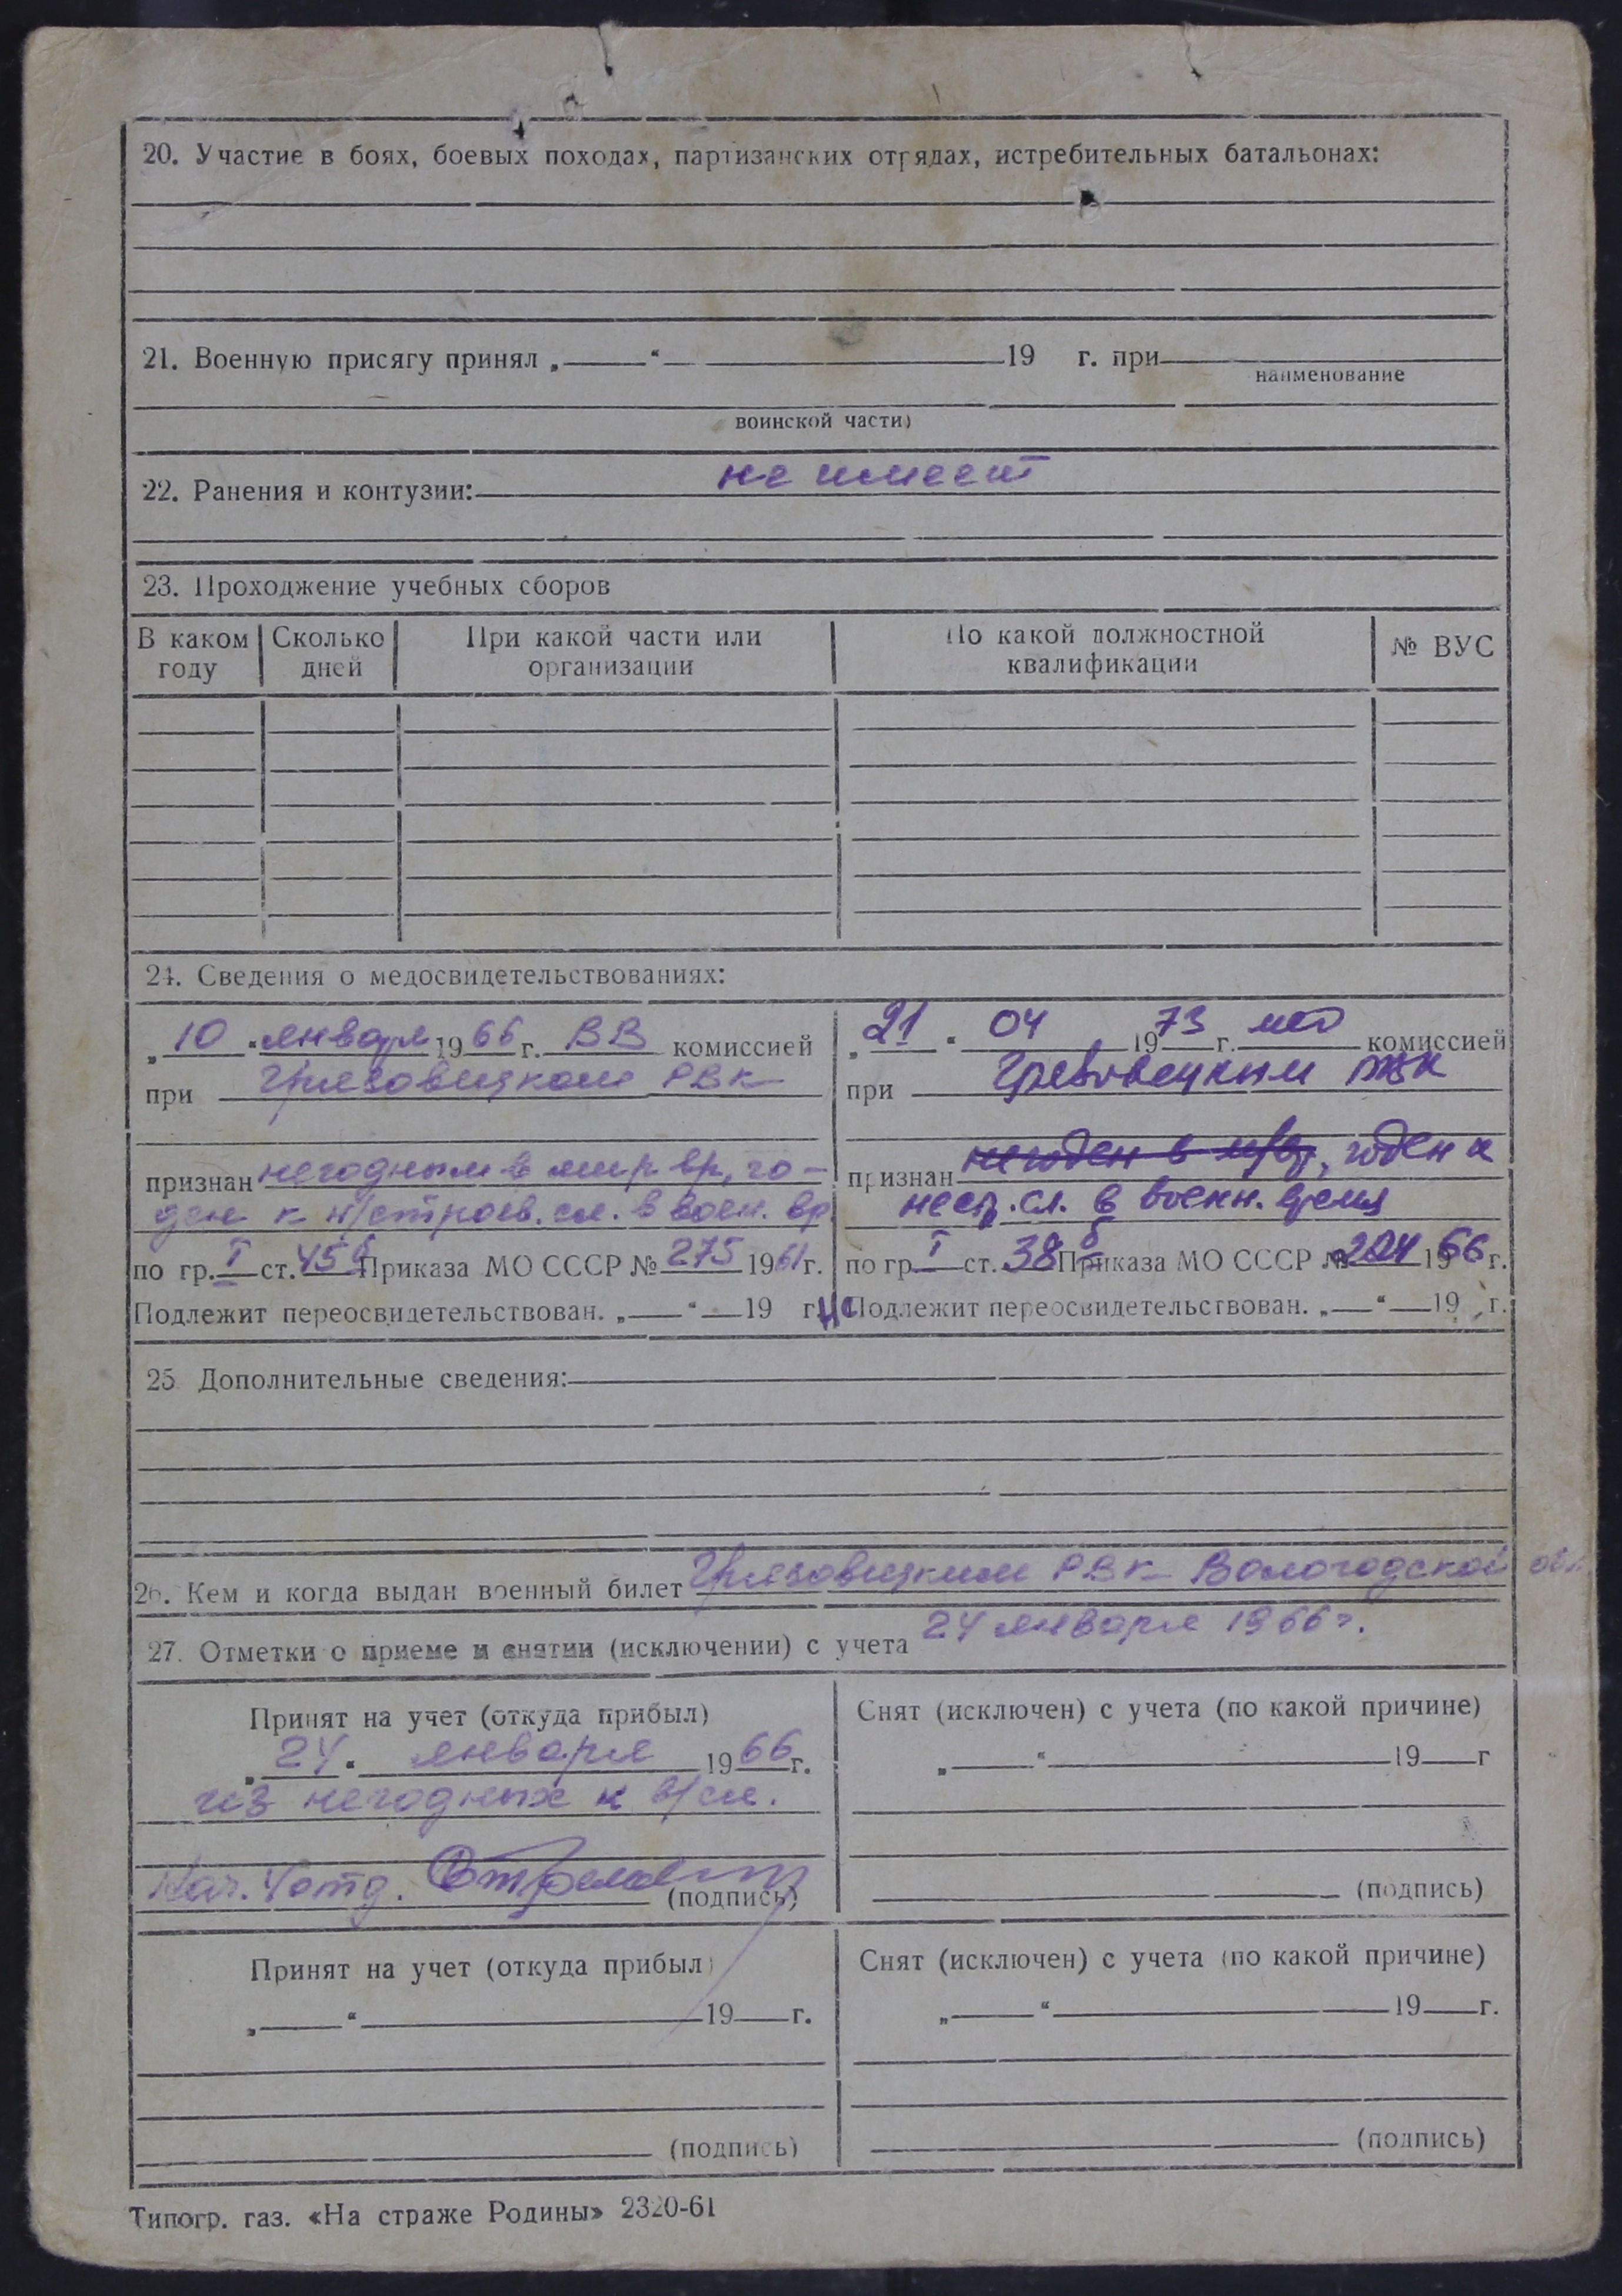 20. Участие в боях, боевых походах, партизанских отрядах, истребительных батальонах:
21. Военную присягу принял „ “ 19 г. при
наименование
воинской части)
22. Ранения и контузии: не имеет
23. Прохождение учебных сборов
В каком году | Сколько дней | При какой части или организации | По какой должностной квалификации | № ВУС
24. Сведения о медосвидетельствованиях:
„10“ января 1966 г. ВВ комиссией
при Грязовецком РВК
признан негодным в мир вр, го-
ден к н/строев. сл. в воен. вр
по гр. I ст. 45б Приказа МО СССР № 275 1961 г.
Подлежит переосвидетельствован. „ “ 19 г.
„21“ 04 1973 г. мед комиссией
при Грязовецким РВК
признан негоден в м/вр, годен к
нестр. сл. в военн. время
по гр I ст. 38б Приказа МО СССР № 204 1966 г.
не Подлежит переосвидетельствован. „ “ 19 г.
25 Дополнительные сведения:
26. Кем и когда выдан военный билет Грязовецким РВК Вологодской обл.
24 января 1966 г.
27. Отметки о приеме и снятии (исключении) с учета
Принят на учет (откуда прибыл)
„24“ января 1966 г.
из негодных к в/сл.
Нач. 1 отд. (подпись)
Снят (исключен) с учета (по какой причине)
„ “ 19 г
(подпись)
Принят на учет (откуда прибыл)
„ “ 19 г.
(подпись)
Снят (исключен) с учета (по какой причине)
„ “ 19 г.
(подпись)
Типогр. газ. «На страже Родины» 2320-61